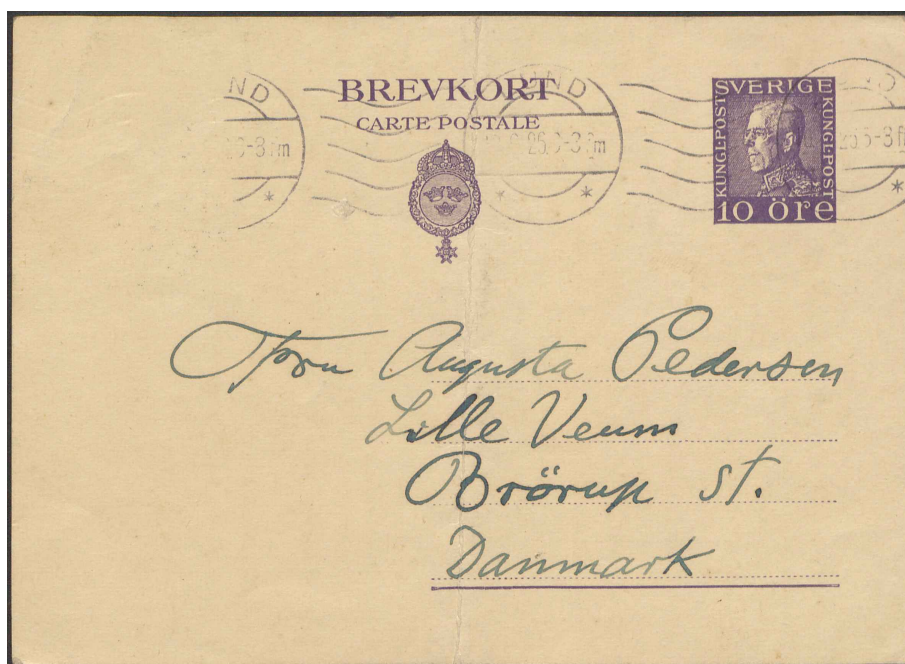 BREVKORT
CARTE POSTALE
SVERIGE
KUNGL·POST
KUNGL·POST
10 öre
Fru Augusta Pedersen
Lille Veum
Brörup St.
Danmark